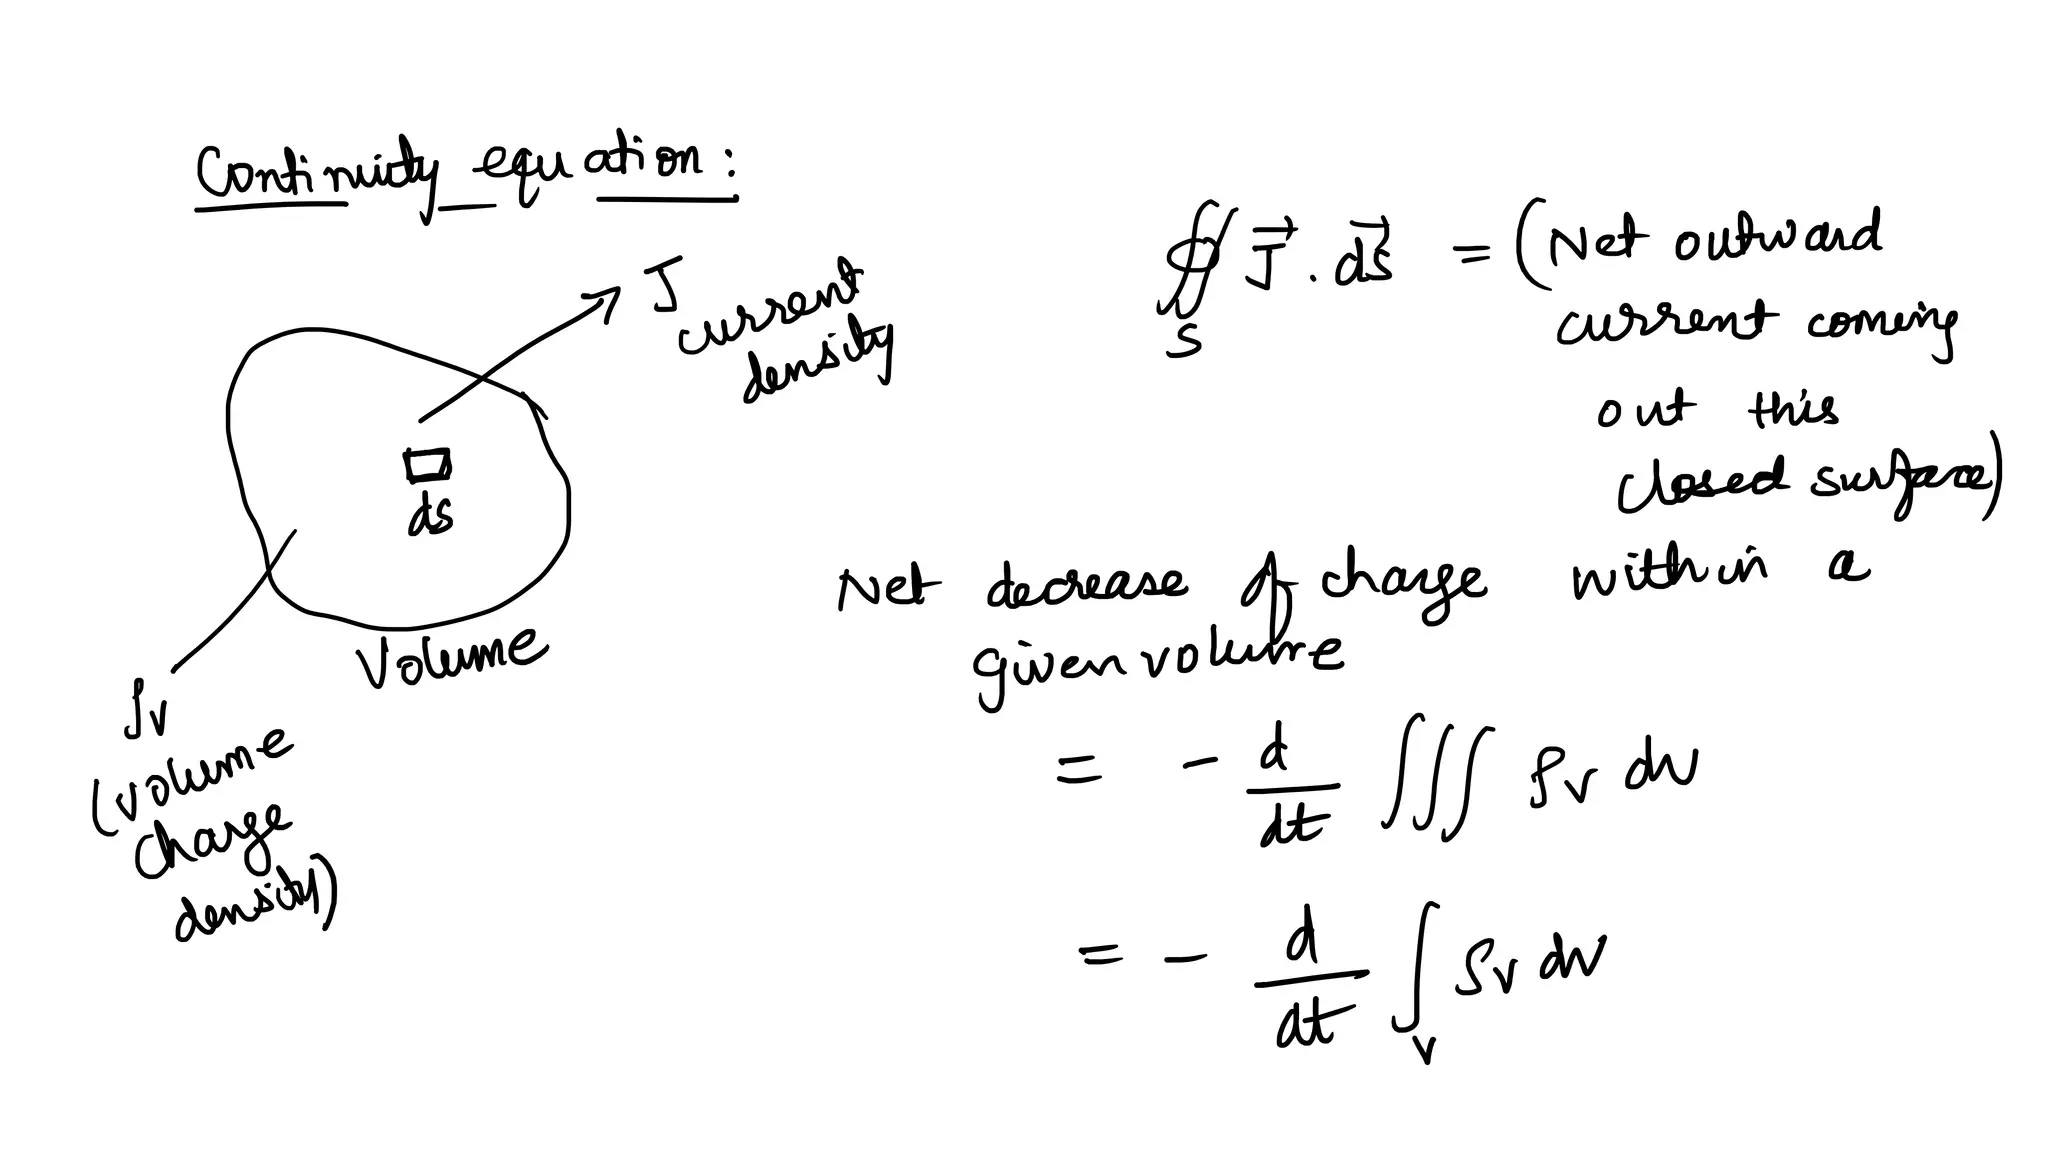 Continuity equation:
J
current
density
ds
Volume
ρv
(volume
charge
density)
∯ J⃗ . ds⃗ = (Net outward
S
current coming
out this
closed surface)
Net decrease of charge within a
given volume
= - d/dt ∭ ρv dv
= - d/dt ∫v ρv dv